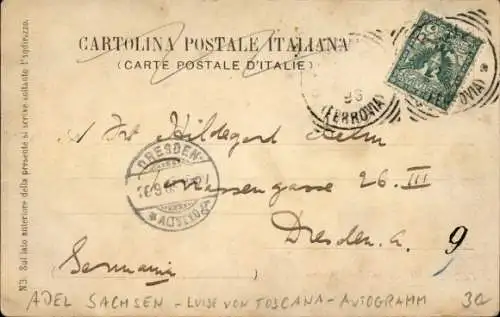 CARTOLINA POSTALE ITALIANA
(CARTE POSTALE D'ITALIE)
NB. Sul lato anteriore della presente si scrive soltanto l'indirizzo.
96
(FERROVIA)
Hildegard
DRESDEN-
ALTSTADT
Terrassengasse 26 III
Dresden. A.
9
(Germania)
ADEL SACHSEN - LUISE VON TOSCANA - AUTOGRAMM 30